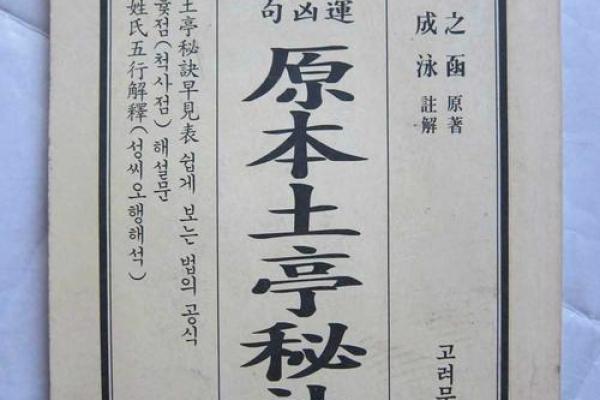 之菡 原著
成泳 註解
고려문
運
凶
句
原本土亭秘
土亭秘訣早見表 쉽게 보는 법의 공식
윷점(척사점) 해설문
姓氏五行解釋(성씨오행해석)